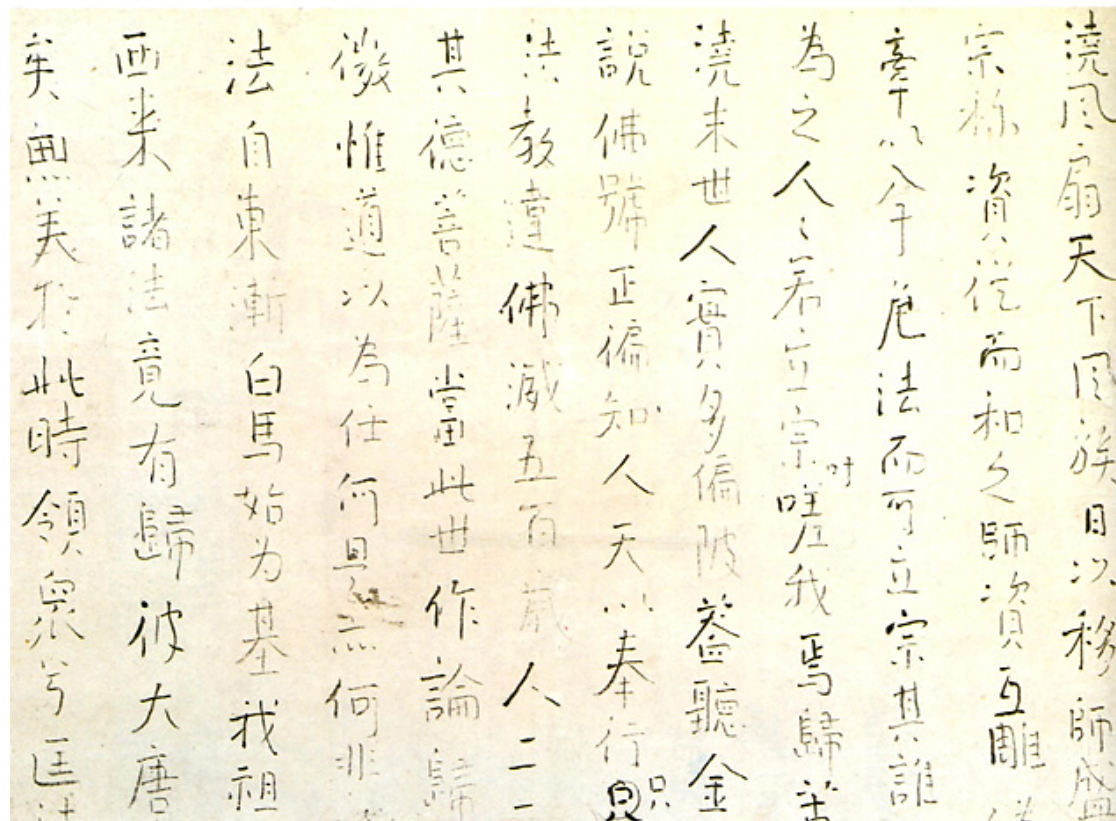 澆風扇天下風族日以移師盛
宗称資以從而和之師資互雕
牽以八于危法而可立宗其誰
為之人々若立宗嗟我焉歸
澆末世人實多偏陂蓋聽金
説佛號正徧知人天以奉行
法教違佛滅五百歳人二二
其德菩薩當此世作論歸
微惟道以為任何是亦何非
法自東漸白馬始为基我祖
西来諸法竟有歸彼大唐
矣無美於此時領衆兮匡